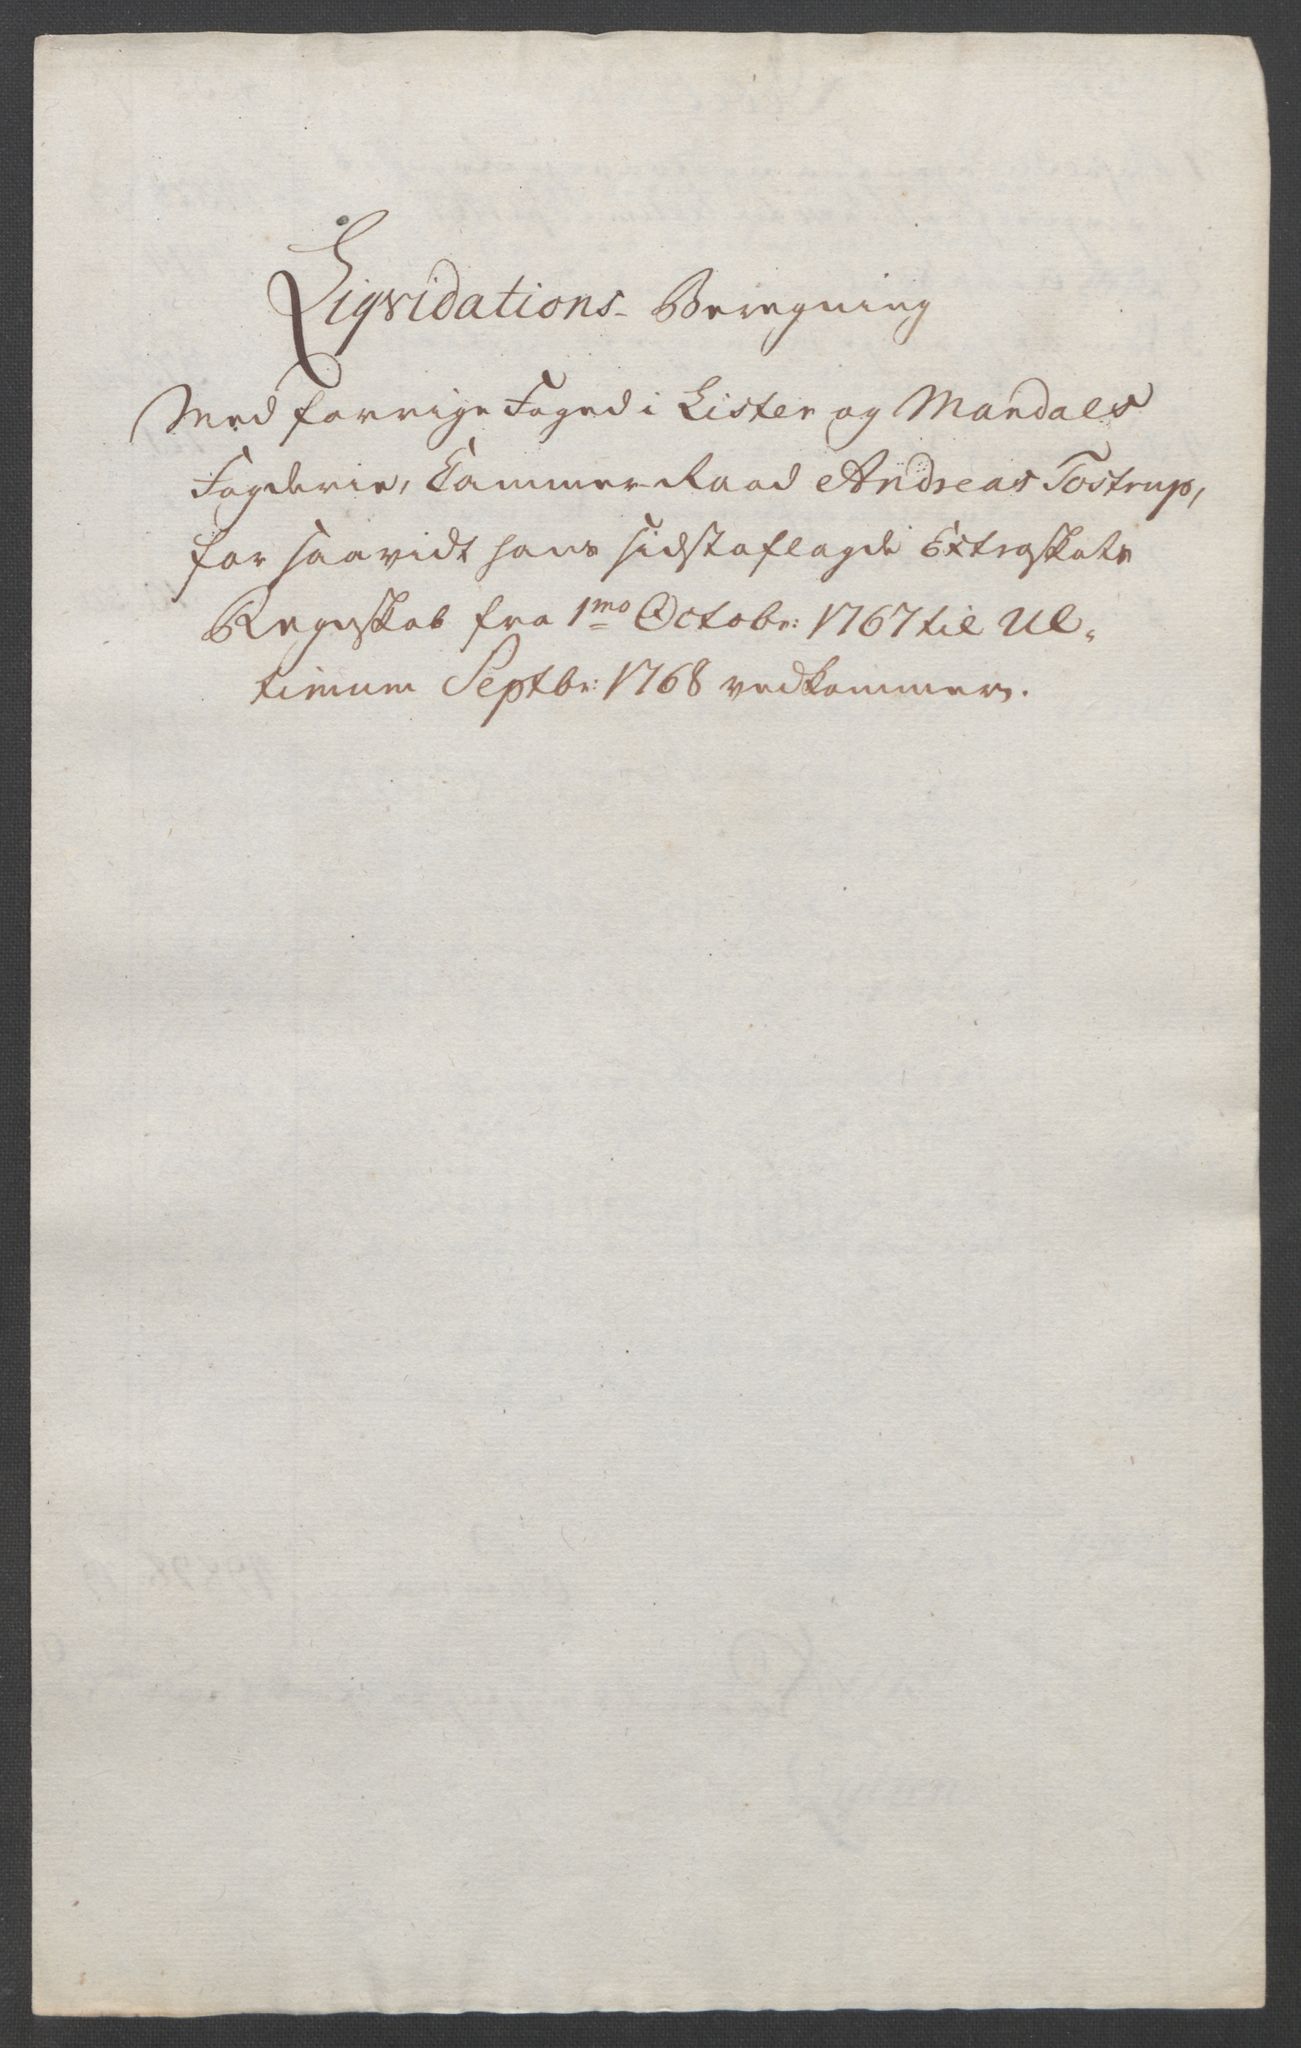 Liqvidations- Beregning
Med forrige Foged i Lister og Mandals
Fogderie, Cammer-Raad Andreas Tostrup,
for saavidt hans sidst aflagde Extraskatte
Regnskab fra 1mo Octobr: 1767 til Ul-
timum Septbr: 1768 vedkommer.